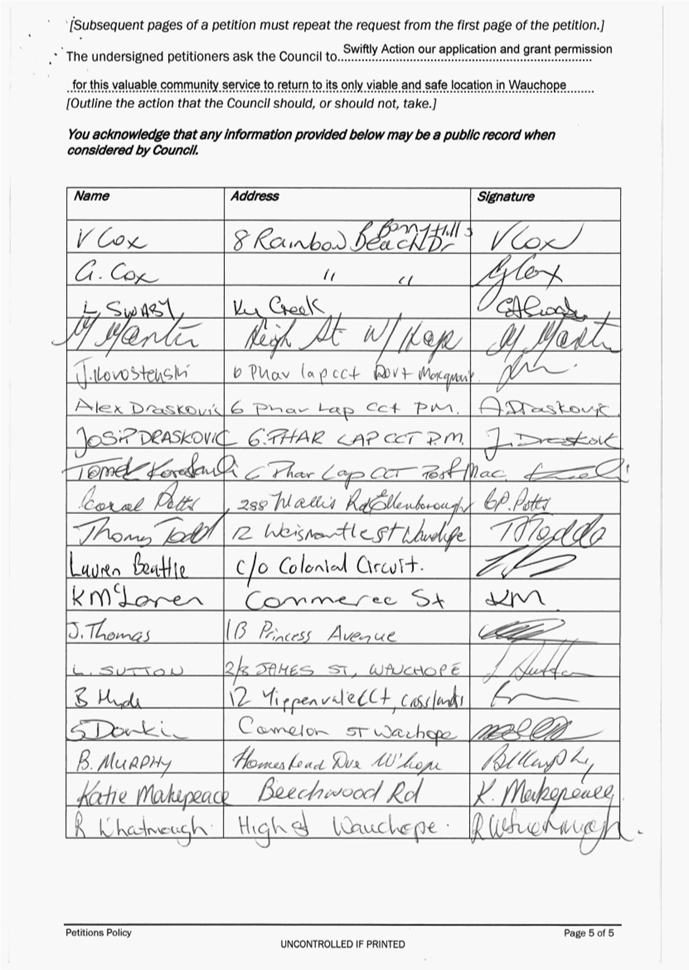 [Subsequent pages of a petition must repeat the request from the first page of the petition.]
The undersigned petitioners ask the Council to.....Swiftly Action our application and grant permission
for this valuable community service to return to its only viable and safe location in Wauchope
[Outline the action that the Council should, or should not, take.]
You acknowledge that any information provided below may be a public record when
considered by Council.
Name Address Signature
V Cox 8 Rainbow Beach Dr Bonny Hills V Cox
G. Cox " " G Cox
L SWABY Ky Creek
M Martin High St W/Hope M Martin
6 Phar lap cct Port Macquarie
Alex Draskovic 6 Phar Lap Cct P.M. A. Draskovic
JOSIP DRASKOVIC 6. PHAR LAP CCT P.M. J. Draskovic
6 Phar Lap CCT Port Mac.
Coral Potts 288 Wallis Rd Ellenborough C.P. Potts
Thomas Todd 12 St Wauchope
Lauren Beattie c/o Colonial Circuit.
K McLaren Commerce St KM
J. Thomas 1B Princess Avenue
L. SUTTON 2/8 JAMES ST, WAUCHOPE L Sutton
B Hyde 12 Yippenvale Cct, Crosslands
S Donkin Camelon ST Wauhope
B. MURPHY Homestead Dve W'hope B Murphy
Katie Makepeace Beechwood Rd K. Makepeace
R Whatmough. High St Wauchope. R Whatmough.
Petitions Policy Page 5 of 5
UNCONTROLLED IF PRINTED